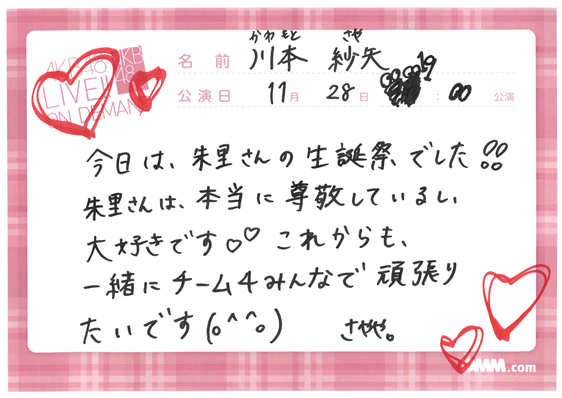 かわもと さや
名前 川本 紗矢
公演日 11月 28日 19:00 公演
AKB48
LIVE!!
ON DEMAND
今日は、朱里さんの生誕祭でした!!
朱里さんは、本当に尊敬しているし、
大好きです♡♡ これからも、
一緒にチーム4みんなで頑張り
たいです(o^^o) さやや。
.com